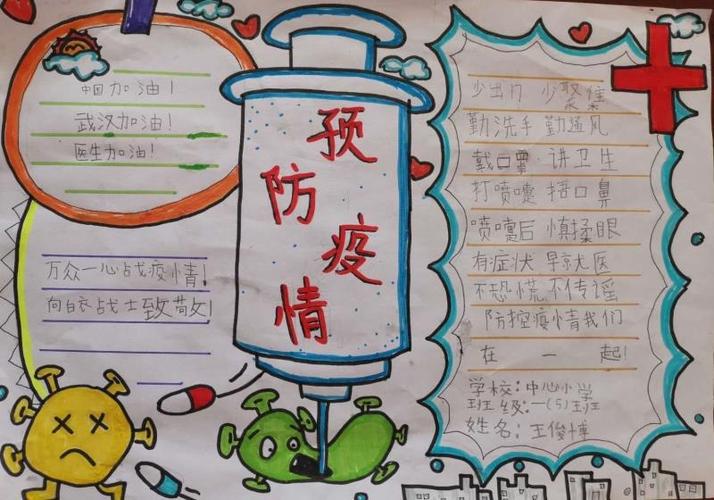 中国加油！
武汉加油！
医生加油！
万众一心战疫情！
向白衣战士致敬！
预
防
疫
情
少出门 少聚集
勤洗手 勤通风
戴口罩 讲卫生
打喷嚏 捂口鼻
喷嚏后 慎揉眼
有症状 早就医
不恐慌 不传谣
防控疫情我们
在一起！
学校：中心小学
班级：一(5)班
姓名：王俊博